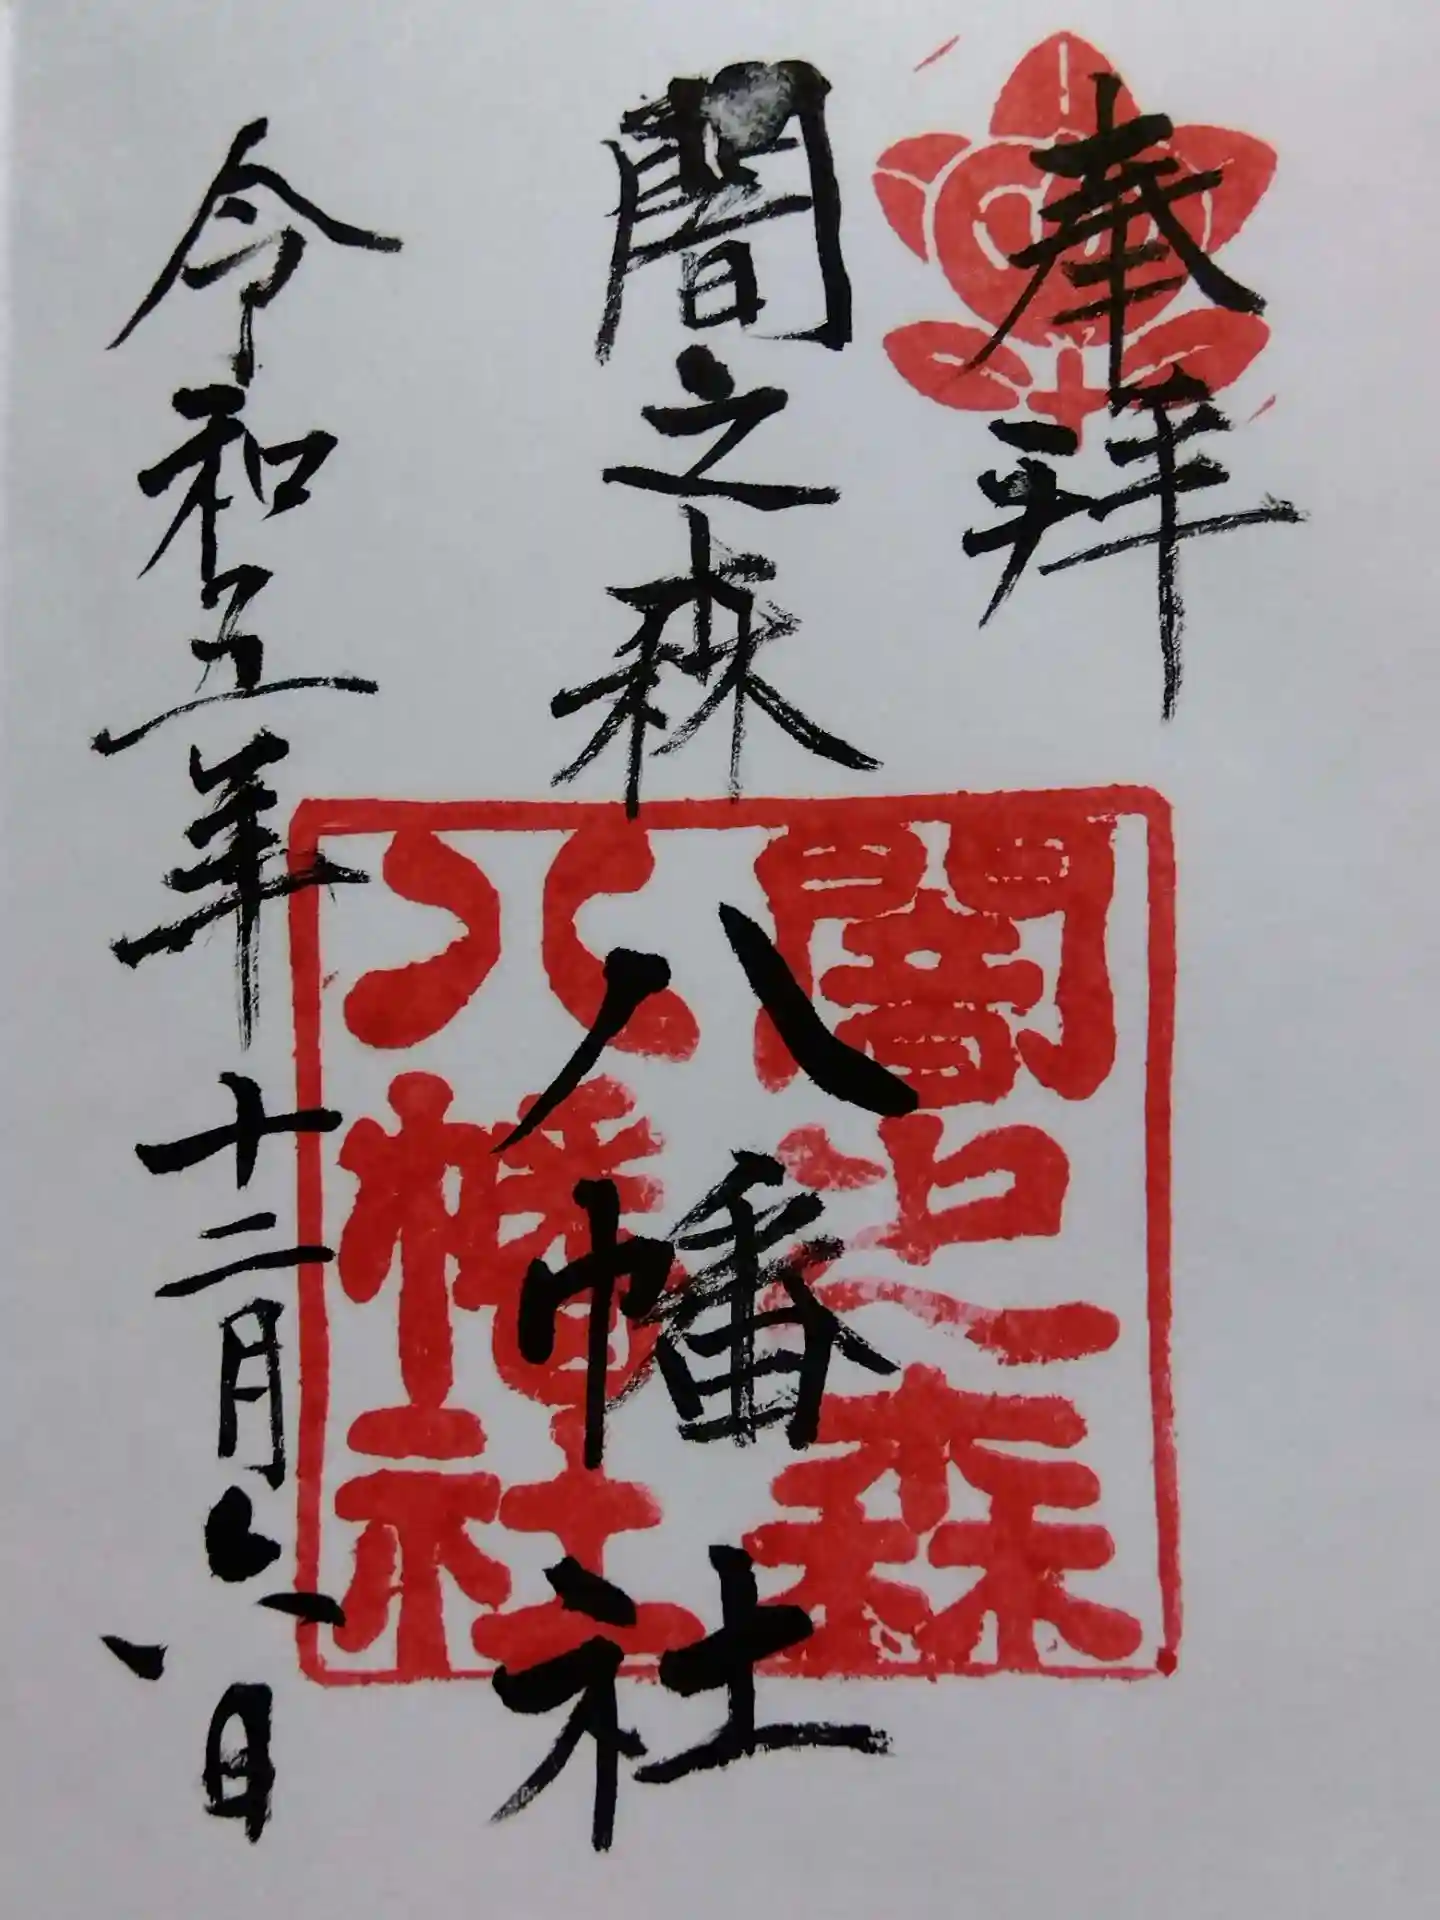 奉拝
闇之森八幡社
令和五年十二月六日
闇之森
八幡社